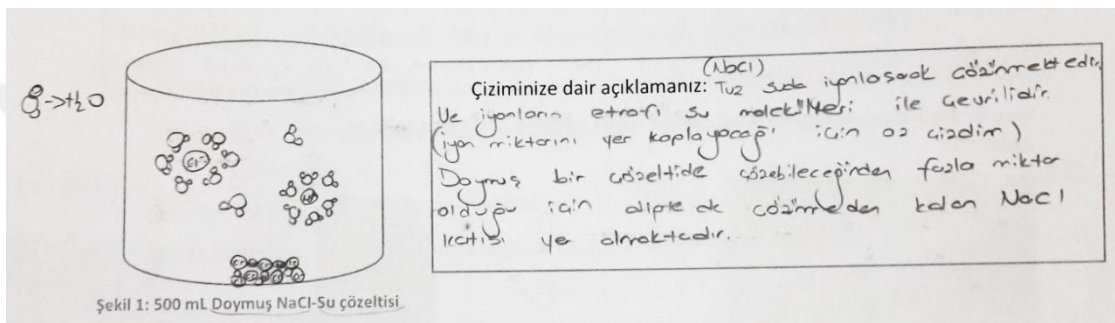 →H₂O
Cl⁻
Şekil 1: 500 mL Doymuş NaCl-Su çözeltisi
(NaCl)
Çiziminize dair açıklamanız: Tuz suda iyonlaşarak çözünmektedir.
Ve iyonların etrafı su molekülleri ile çevrilidir.
(iyon miktarını yer kaplayacağı için az çizdim)
Doymuş bir çözeltide çözebileceğinden fazla miktar
olduğu için dipte de çözünmeden kalan NaCl
katısı yer almaktadır.